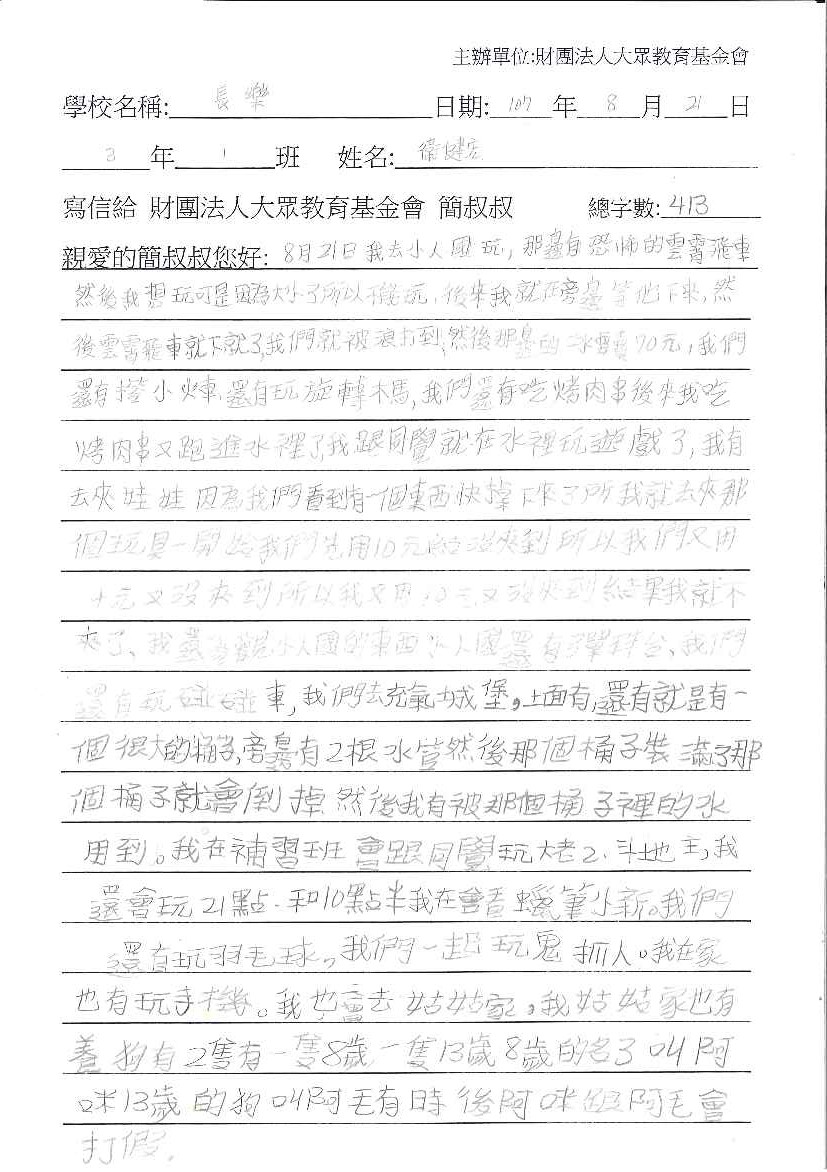 主辦單位:財團法人大眾教育基金會
學校名稱: 長樂 日期: 107 年 8 月 21 日
3 年 1 班 姓名: 健宏
寫信給 財團法人大眾教育基金會 簡叔叔 總字數: 413
親愛的簡叔叔您好: 8月21日我去小人國玩,那邊有恐怖的雲霄飛車
然後我想玩可是因為太小了所以不能玩,後來我就在旁邊等他下來,然
後雲霄飛車就下就了,我們就被浪打到,然後那邊的冰要70元,我們
還有搭小火車,還有玩旋轉木馬,我們還有吃烤肉串後來我吃
烤肉串又跑進水裡了我跟同學就在水裡玩遊戲了,我有
去夾娃娃因為我們看到有一個東西快掉下來了所我就去夾那
個玩具一開始我們先用10元沒夾到所以我們又用
十元又沒夾到所以我又用10元又沒夾到結果我就不
夾了、我還參觀小人國的東西小人國還有彈珠台、我們
還有玩碰碰車,我們去充氣城堡,上面有,還有就是有一
個很大的桶子,旁邊有2根水管然後那個桶子裝滿了那
個桶子就會倒掉然後我有被那個桶子裡的水
用到。我在補習班會跟同學玩大老2.斗地主,我
還會玩21點.和10點半我在會看蠟筆小新。我們
還有玩羽毛球,我們一起玩鬼抓人。我在家
也有玩手機。我也會去姑姑家,我姑姑家也有
養狗有2隻有一隻8歲一隻13歲8歲的名子叫阿
咪13歲的狗叫阿毛有時後阿咪跟阿毛會
打假.